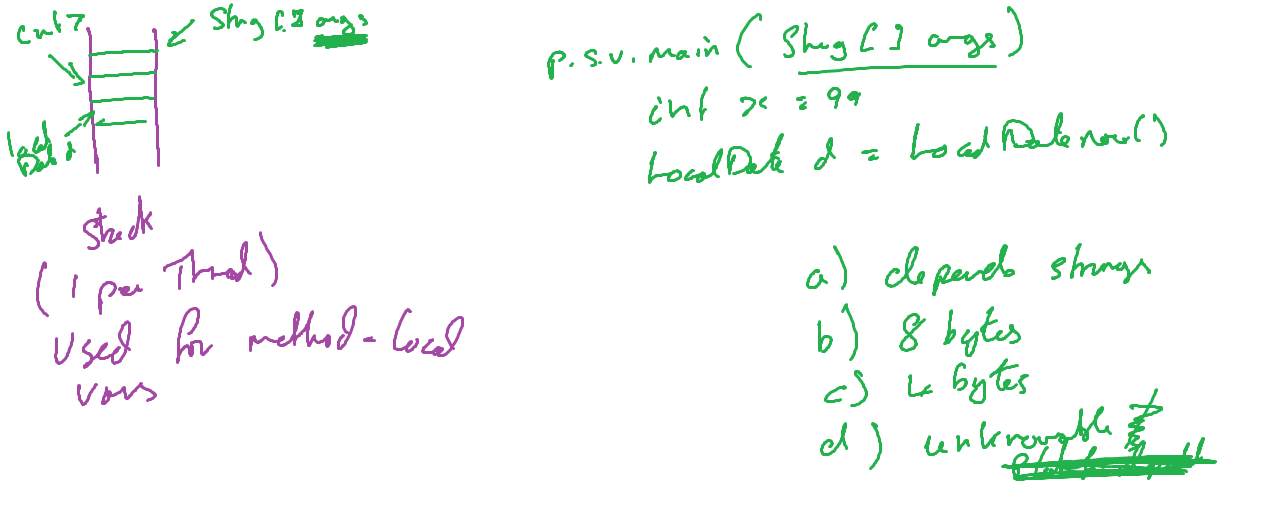 String [] args
int x
Local Date d
Stack
(1 per Thread)
Used for method-local
vars
p.s.v. main (String [] args)
int x = 99
LocalDate d = LocalDate now()
a) depends strings
b) 8 bytes
c) 4 bytes
d) unknowable